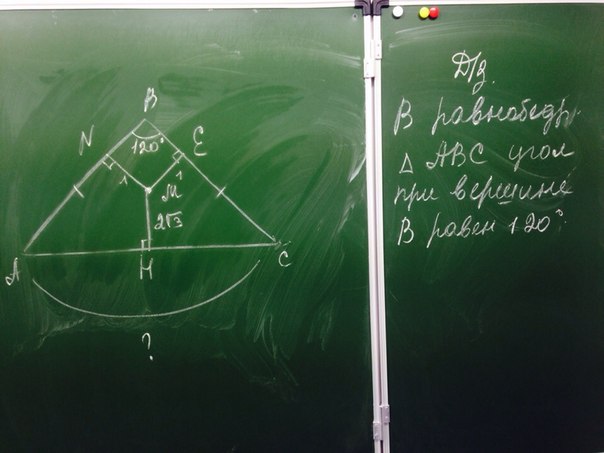 B
N
120°
E
1
1
M
2√3
A
H
C
?
Д/з.
В равнобедр.
△ ABC угол
при вершине
B равен 120°.